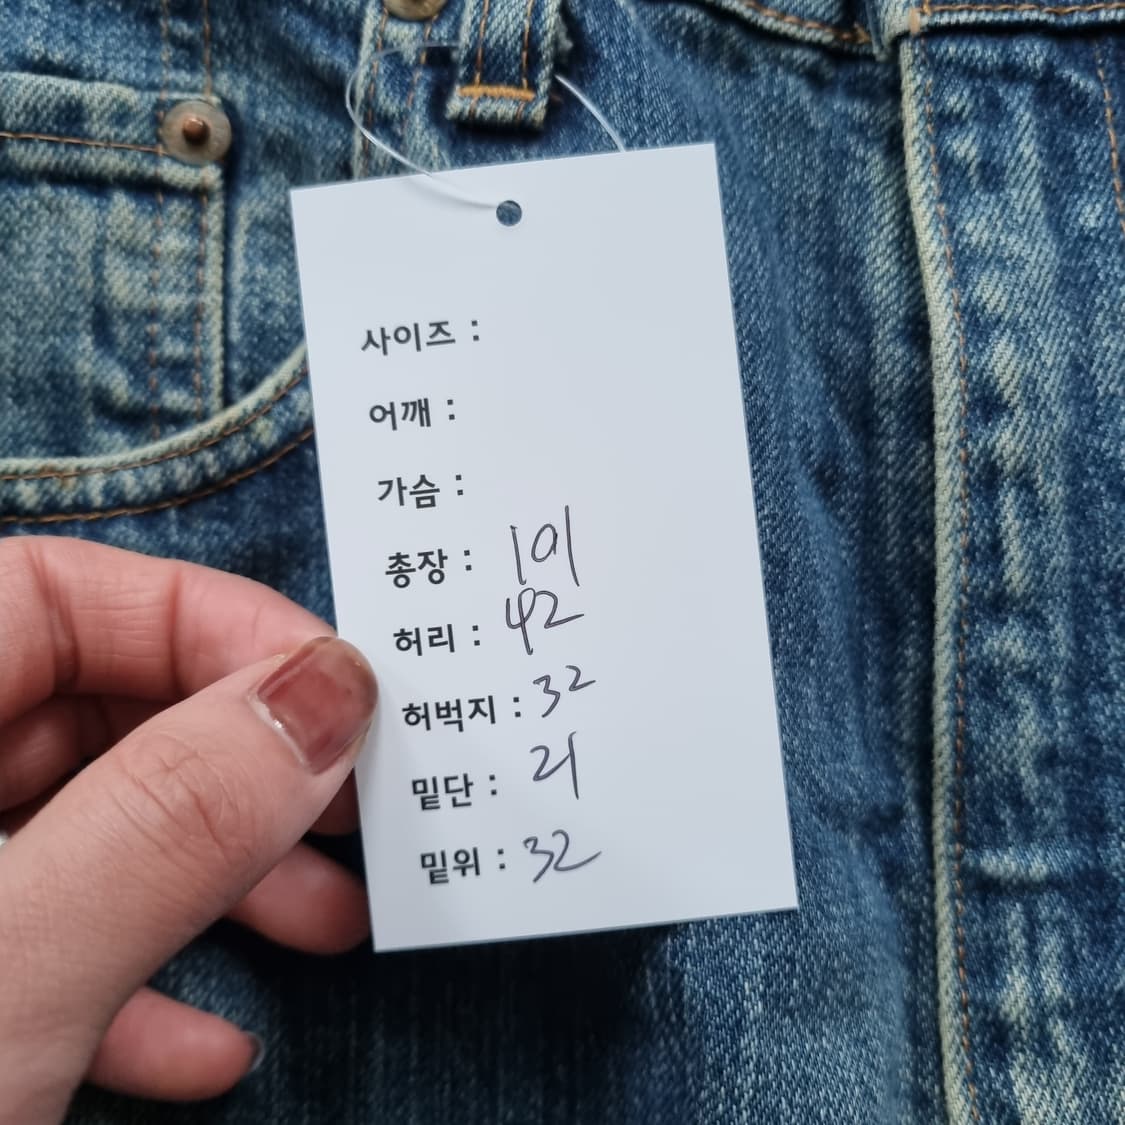 사이즈 :
어깨 :
가슴 :
총장 : 101
허리 : 42
허벅지 : 32
밑단 : 21
밑위 : 32